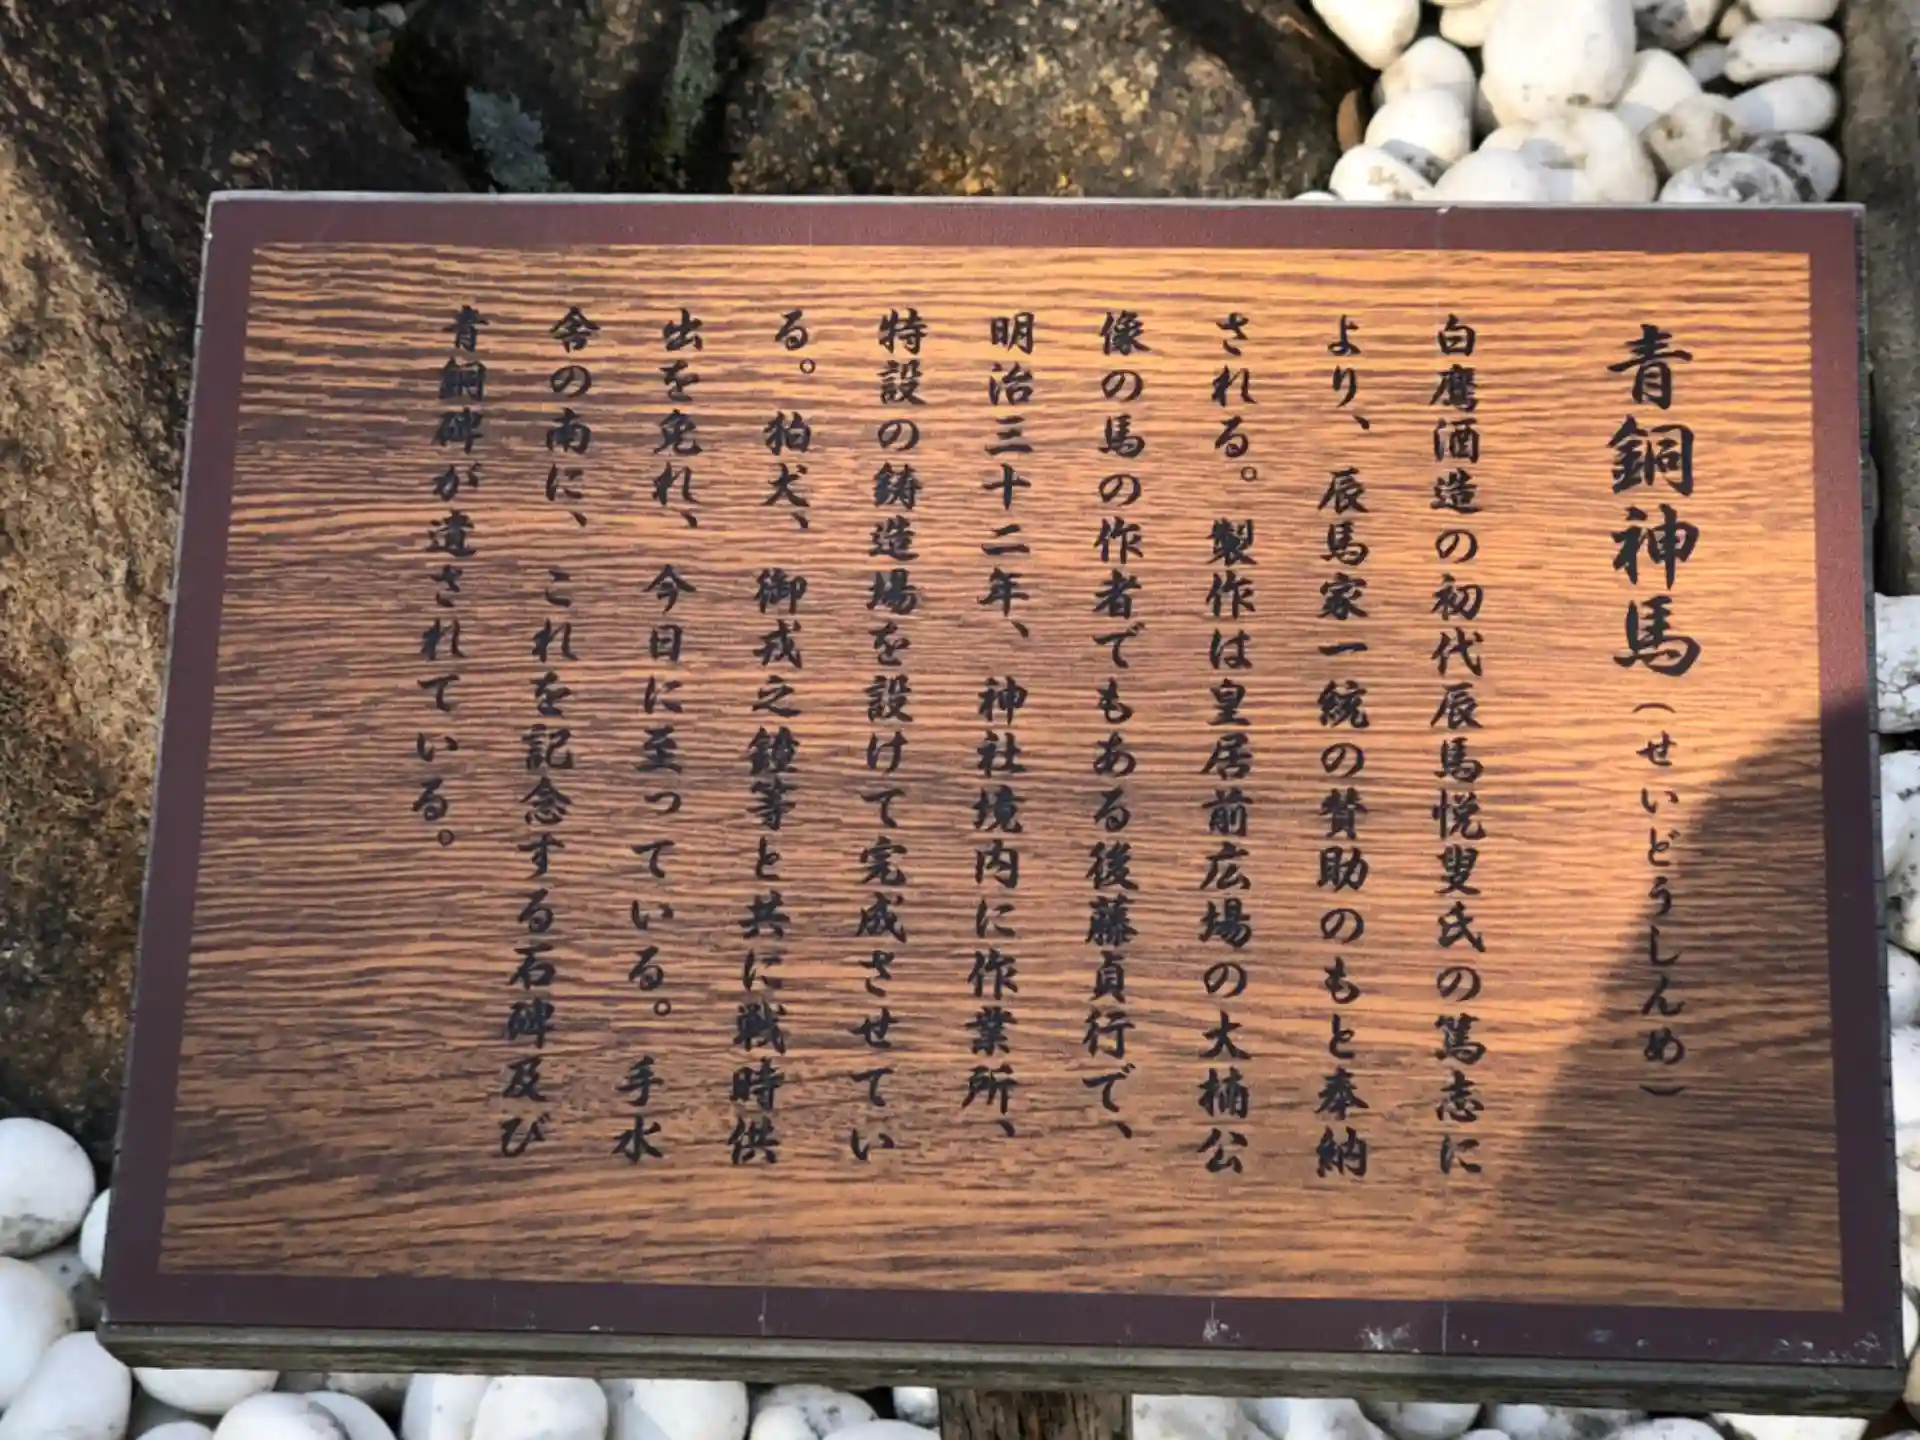 青銅神馬(せいどうしんめ)
白鷹酒造の初代辰馬悦叟氏の篤志に
より、辰馬家一統の賛助のもと奉納
される。製作は皇居前広場の大楠公
像の馬の作者でもある後藤貞行で、
明治三十二年、神社境内に作業所、
特設の鋳造場を設けて完成させてい
る。狛犬、御戎之鐘等と共に戦時供
出を免れ、今日に至っている。手水
舎の南に、これを記念する石碑及び
青銅碑が遺されている。